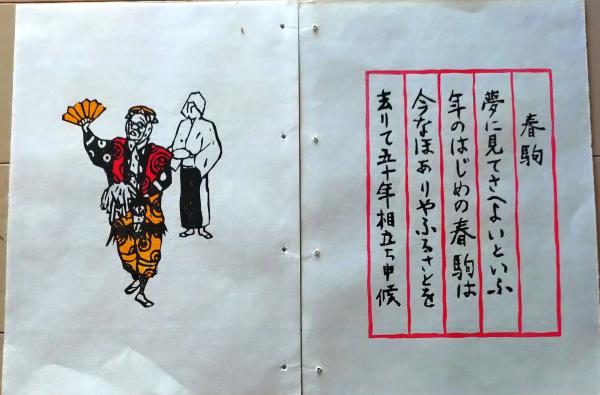 春駒
夢に見てさへよいといふ
年のはじめの春駒は
今なほありやふるさとを
去りて五十年相立ち申候